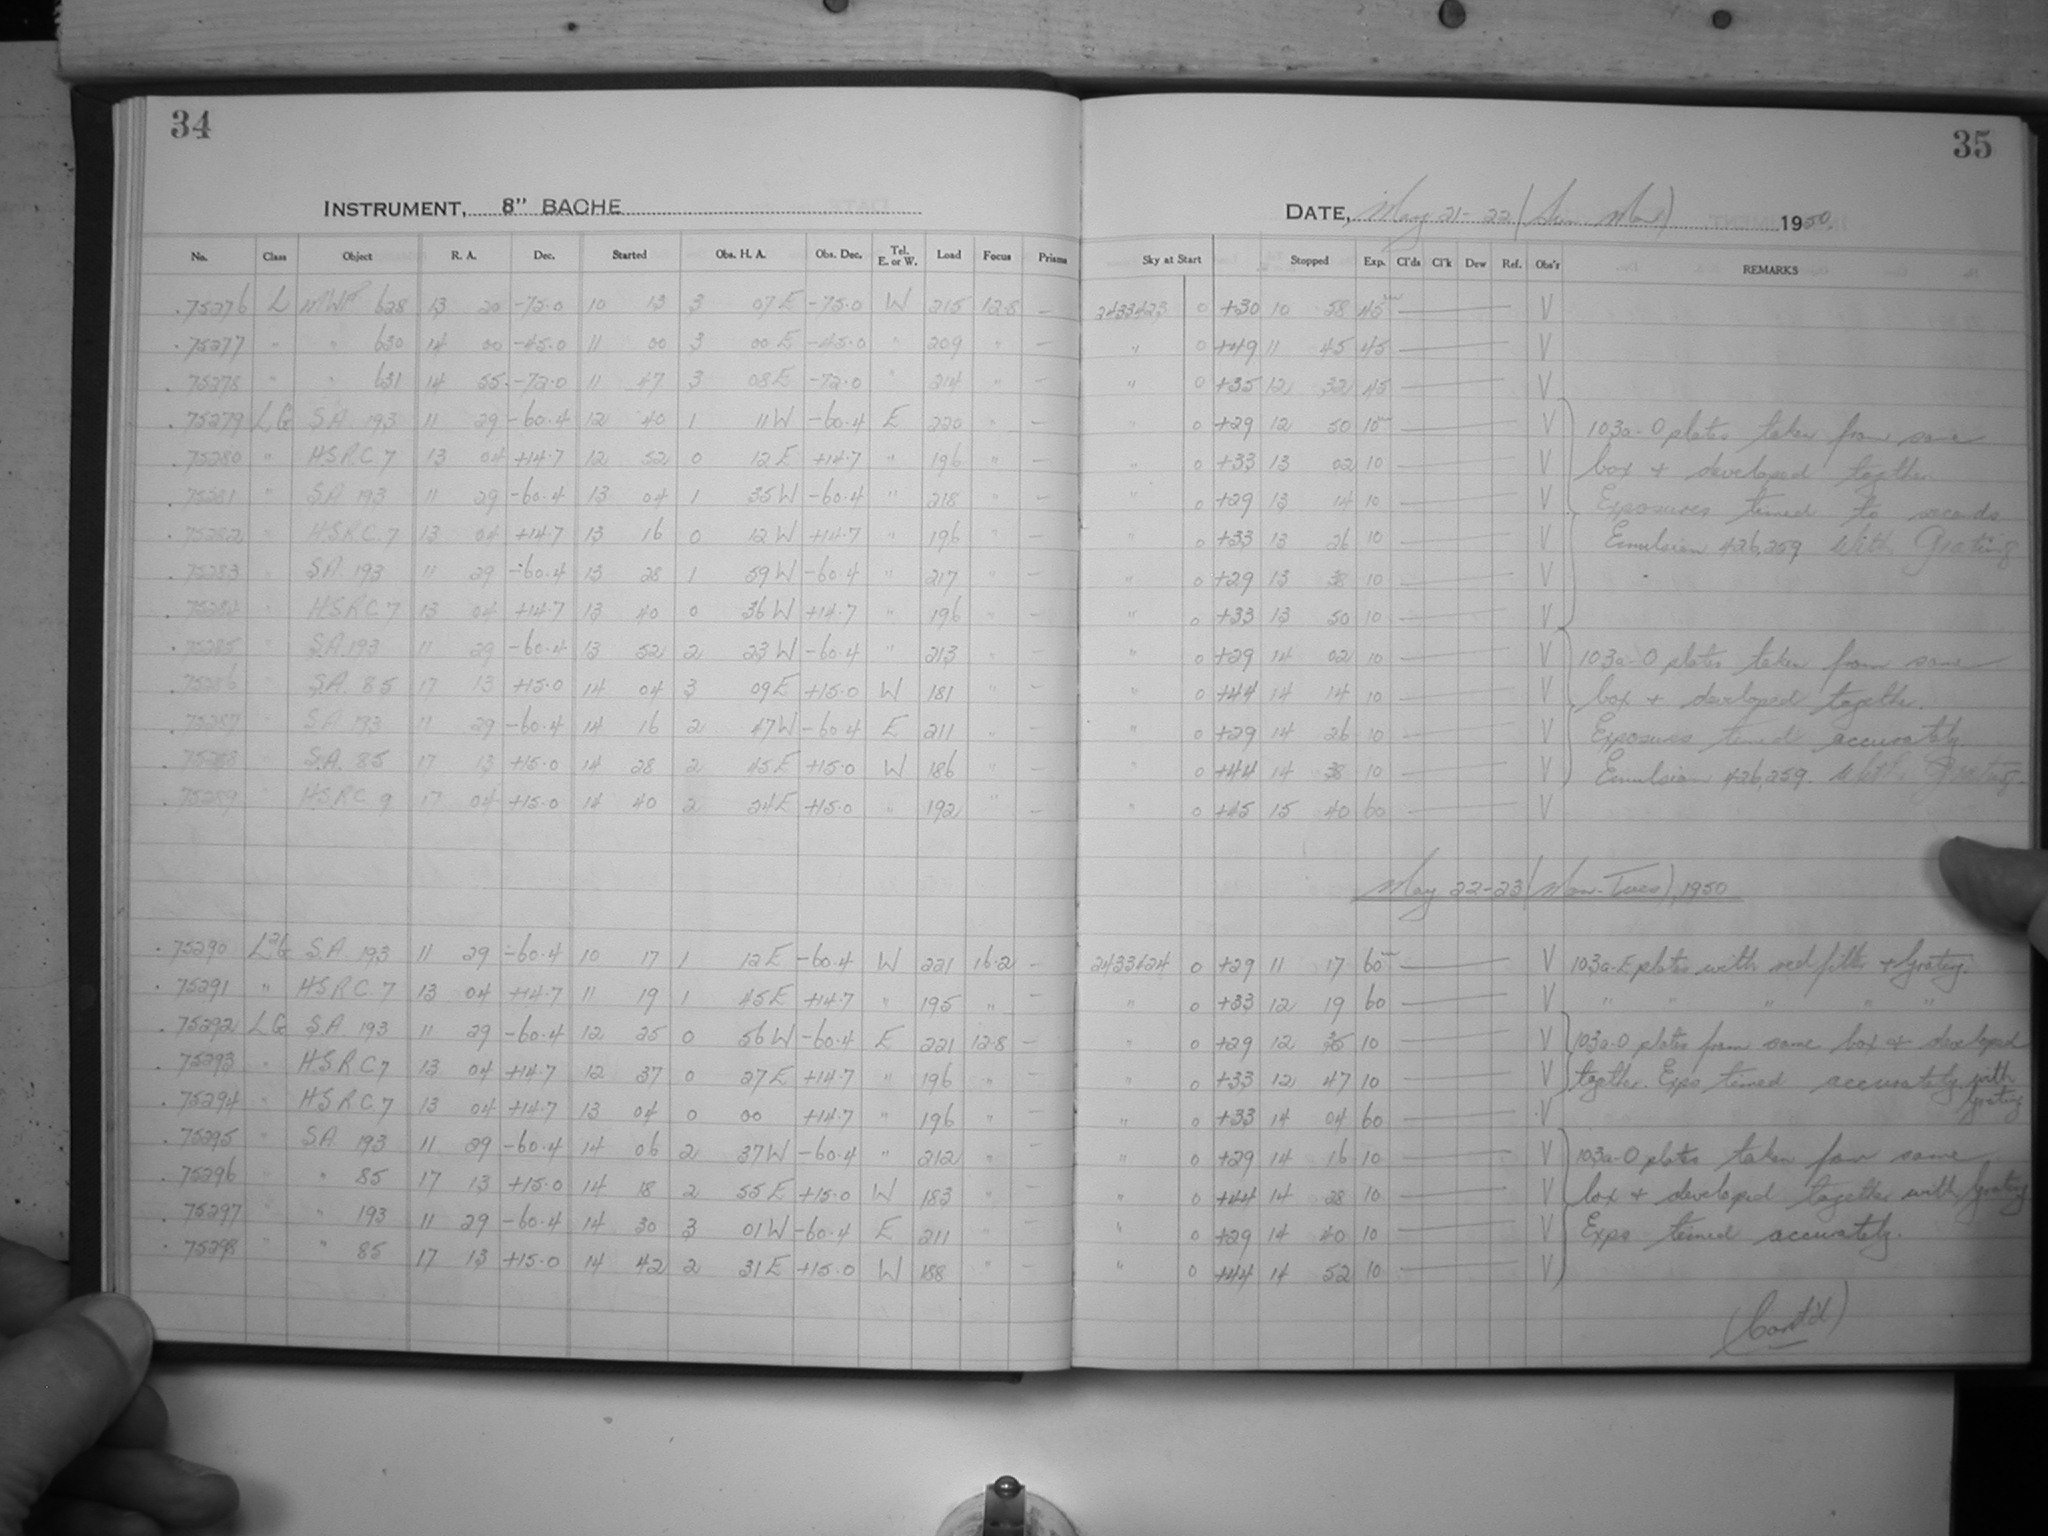 34
INSTRUMENT, 8" BACHE
No. Class Object R. A. Dec. Started Obs. H. A. Obs. Dec. Tel. E. or W. Load Focus Prisms
75276 L MWF 628 13 20 -75.0 10 13 3 07 E -75.0 W 215 12.8 —
75277 " " 630 14 00 -45.0 11 00 3 00 E -45.0 " 209 " —
75278 " " 631 14 55 -72.0 11 47 3 08 E -72.0 " 214 " —
75279 LG S.A. 193 11 29 -60.4 12 40 1 11 W -60.4 E 220 " —
75280 " HSRC 7 13 04 +14.7 12 52 0 12 E +14.7 " 196 " —
75281 " S.A. 193 11 29 -60.4 13 04 1 35 W -60.4 " 218 " —
75282 " HSRC 7 13 04 +14.7 13 16 0 12 W +14.7 " 196 " —
75283 " S.A. 193 11 29 -60.4 13 28 1 59 W -60.4 " 217 " —
75284 " HSRC 7 13 04 +14.7 13 40 0 36 W +14.7 " 196 " —
75285 " S.A. 193 11 29 -60.4 13 52 2 23 W -60.4 " 213 " —
75286 " S.A. 85 17 13 +15.0 14 04 3 09 E +15.0 W 181 " —
75287 " S.A. 193 11 29 -60.4 14 16 2 47 W -60.4 E 211 " —
75288 " S.A. 85 17 13 +15.0 14 28 2 45 E +15.0 W 186 " —
75289 " HSRC 9 17 04 +15.0 14 40 2 24 E +15.0 " 192 " —
75290 L2G S.A. 193 11 29 -60.4 10 17 1 12 E -60.4 W 221 16.2 —
75291 " HSRC 7 13 04 +14.7 11 19 1 45 E +14.7 " 195 " —
75292 LG S.A. 193 11 29 -60.4 12 25 0 56 W -60.4 E 221 12.8 —
75293 " HSRC 7 13 04 +14.7 12 37 0 27 E +14.7 " 196 " —
75294 " HSRC 7 13 04 +14.7 13 04 0 00 +14.7 " 196 " —
75295 " S.A. 193 11 29 -60.4 14 06 2 37 W -60.4 " 212 " —
75296 " " 85 17 13 +15.0 14 18 2 55 E +15.0 W 183 " —
75297 " " 193 11 29 -60.4 14 30 3 01 W -60.4 E 211 " —
75298 " " 85 17 13 +15.0 14 42 2 31 E +15.0 W 188 " —
35
DATE, May 21-22 (Sun Mon) 1950
Sky at Start Stopped Exp. Cl'ds Cl'k Dew Ref. Obs'r REMARKS
2433423 0 +30 10 58 45m V
" 0 +49 11 45 45 V
" 0 +35 12 32 45 V
" 0 +29 12 50 10m V 103a-O plates taken from same
" 0 +33 13 02 10 V box + developed together
" 0 +29 13 14 10 V Exposures timed to seconds
" 0 +33 13 26 10 V Emulsion 426,259 With Grating
" 0 +29 13 38 10 V
" 0 +33 13 50 10 V
" 0 +29 14 02 10 V 103a-O plates taken from same
" 0 +44 14 14 10 V box + developed together.
" 0 +29 14 26 10 V Exposures timed accurately.
" 0 +44 14 38 10 V Emulsion 426,259. With Grating
" 0 +45 15 40 60 V
May 22-23 (Mon-Tues), 1950
2433424 0 +29 11 17 60m V 103a-E plates with red filter + Grating
" 0 +33 12 19 60 V " " " " "
" 0 +29 12 35 10 V 103a-O plates from same box + developed
" 0 +33 12 47 10 V together. Expo timed accurately with Grating
" 0 +33 14 04 60 V
" 0 +29 14 16 10 V 103a-O plates taken from same
" 0 +44 14 28 10 V box + developed together with Grating
" 0 +29 14 40 10 V Expo timed accurately.
" 0 +44 14 52 10 V
(Cont'd)